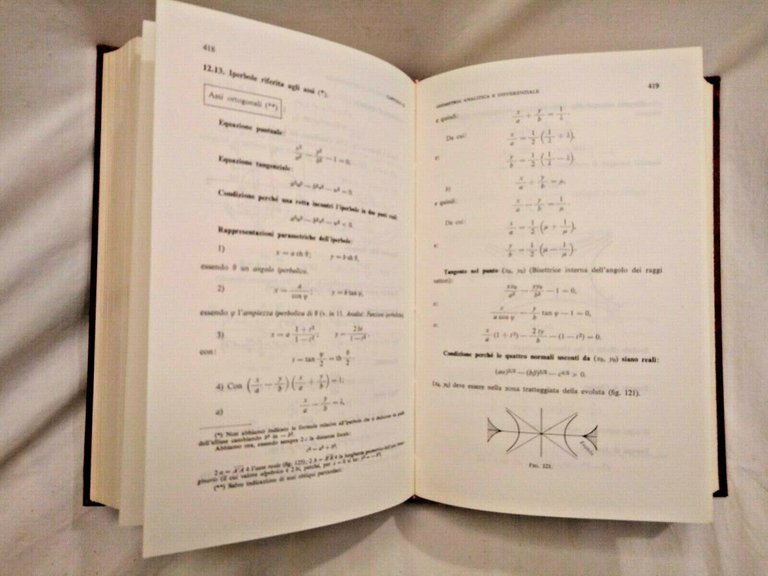 418
12.13. Iperbole riferita agli assi (*).
Assi ortogonali (**)
Equazione puntuale:
x²/a² — y²/b² — 1 = 0.
Equazione tangenziale:
a²u² — b²v² — w² = 0.
Condizione perché una retta incontri l'iperbole in due punti reali:
a²u² — b²v² — w² < 0.
Rappresentazioni parametriche dell'iperbole:
1)
essendo θ un angolo iperbolico.
2) x = a/cos φ ; y = b tan φ,
essendo φ l'ampiezza iperbolica di θ (v. in 11. Analisi. Funzioni iperboliche).
3) x = a (1 + t²)/(1 — t²) ; y = 2 bt/(1 — t²)
con:
t = tan φ/2 = th θ/2
4) Con (x/a — y/b) (x/a + y/b) = 1;
a) x/a — y/b = λ,
(*) Non abbiamo indicato le formule relative all'iperbole che si deducono da quelle
dell'ellisse cambiando b² in — b².
Abbiamo ora, essendo sempre 2 c la distanza focale:
c² = a² + b².
(**) Salvo indicazione di assi obliqui particolari.
GEOMETRIA ANALITICA E DIFFERENZIALE
419
e quindi: x/a + y/b = 1/λ
Da cui:
e: y/b = 1/2 (1/λ — λ)
b) x/a + y/b = μ,
e quindi: x/a — y/b = 1/μ
Da cui: x/a = 1/2 (μ + 1/μ),
e: y/b = 1/2 (μ — 1/μ).
Tangente nel punto (x₀, y₀) (Bisettrice interna dell'angolo dei raggi
vettori):
xx₀/a² — yy₀/b² — 1 = 0,
o: x/(a cos φ) — y/b tan φ — 1 = 0,
o: x/a (1 + t²) — 2 ty/b — (1 — t²) = 0.
Condizione perché le quattro normali uscenti da (x₀, y₀) siano reali:
(x₀, y₀) deve essere nella zona tratteggiata della evoluta (fig. 121).
FIG. 121.